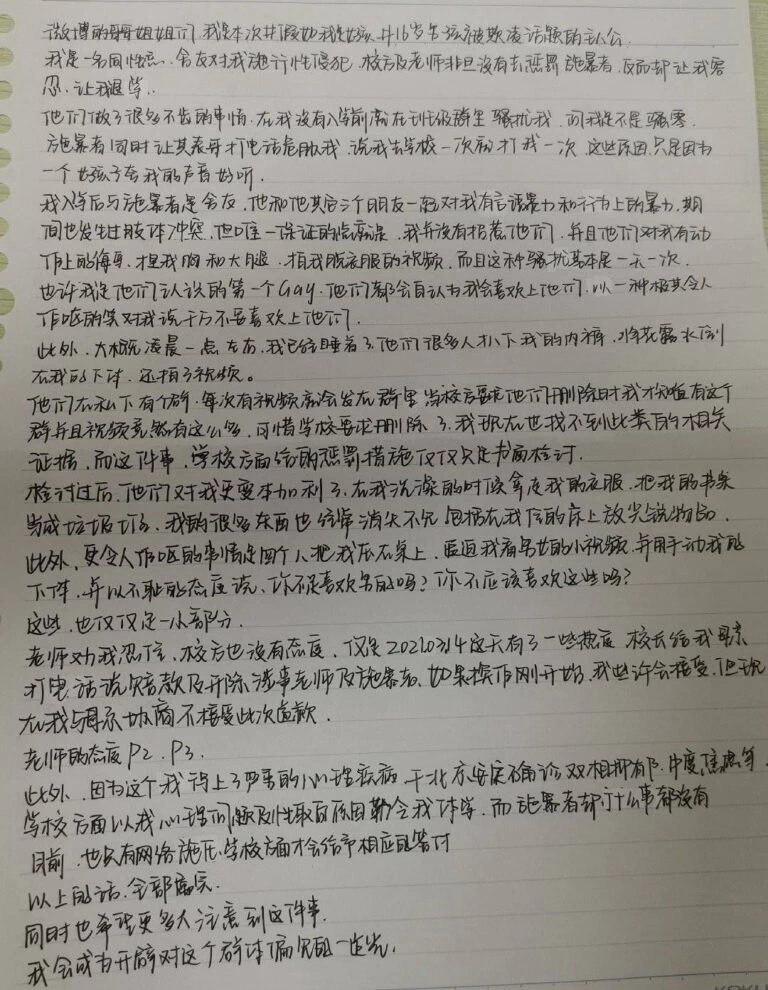 微博的哥哥姐姐们，我是本次#假如我是女孩 #16岁男孩被欺凌话题的主人公.
我是一名同性恋、舍友对我施行性侵犯，校方及老师非但没有去惩罚施暴者，反而却让我容
忍，让我退学.
他们做了很多不齿的事情，在我没有入学前就在班级群里骚扰我，问我是不是骚零.
施暴者同时让其表哥打电话危胁我，说我去学校一次就打我一次，这些原因只是因为
一个女孩子夸我的声音好听.
我入学后与施暴者是舍友，他和他其它三个朋友一起对我有言语暴力和行为上的暴力，期
间也发生过肢体冲突，但唯一保证的点就是，我并没有招惹他们，并且他们对我有动
作上的侮辱，捏我胸和大腿，拍我脱衣服的视频，而且这种骚扰基本是一天一次.
也许我是他们认识的第一个Gay，他们都会自认为我会喜欢上他们，以一种极其令人
作呕的笑对我说千万不要喜欢上他们.
此外，大概凌晨一点左右，我已经睡着了，他们很多人扒下我的内裤，将花露水倒
在我的下体，还拍了视频。
他们在私下有个群，每次有视频就会发在群里 当校方要求他们删除时我才知道有这个
群并且视频竟然有这么多，可惜学校要求删除了，我现在也找不到此类的相关
证据，而这件事，学校方面给的惩罚措施仅仅只是书面检讨.
检讨过后，他们对我更变本加利了，在我洗澡的时候拿走我的衣服，把我的书桌
当成垃圾了，我的很多东西也经常消失不见 包括在我住的床上放尖锐物品.
此外，更令人作呕的事情是四个人把我压在桌上，逼迫我看男女的小视频，并用手动我的
下体，并以不耻的态度说，你不是喜欢男的吗？你不应该喜欢这些吗？
这些，也仅仅是一小部分.
老师劝我忍住，校方也没有态度，仅是20210314这天有了一些热度，校长给我母亲
打电话说赔款及开除涉事老师及施暴者，如果操作刚开始，我些许会接受，但现
在我与母亲协商不接受此次道款.
老师的态度P2.P3.
此外，因为这个我得上了严重的心理疾病，于北京安定确诊双相抑郁，中度焦虑等.
学校方面以我心理问题及性取向原因勒令我休学，而施暴者却什么事都没有
目前，也只有网络施压，学校方面才会给予相应的答付
以上的话，全部属实.
同时也希望更多人注意到这件事.
我会成为开辟对这个群体偏见的一道光.